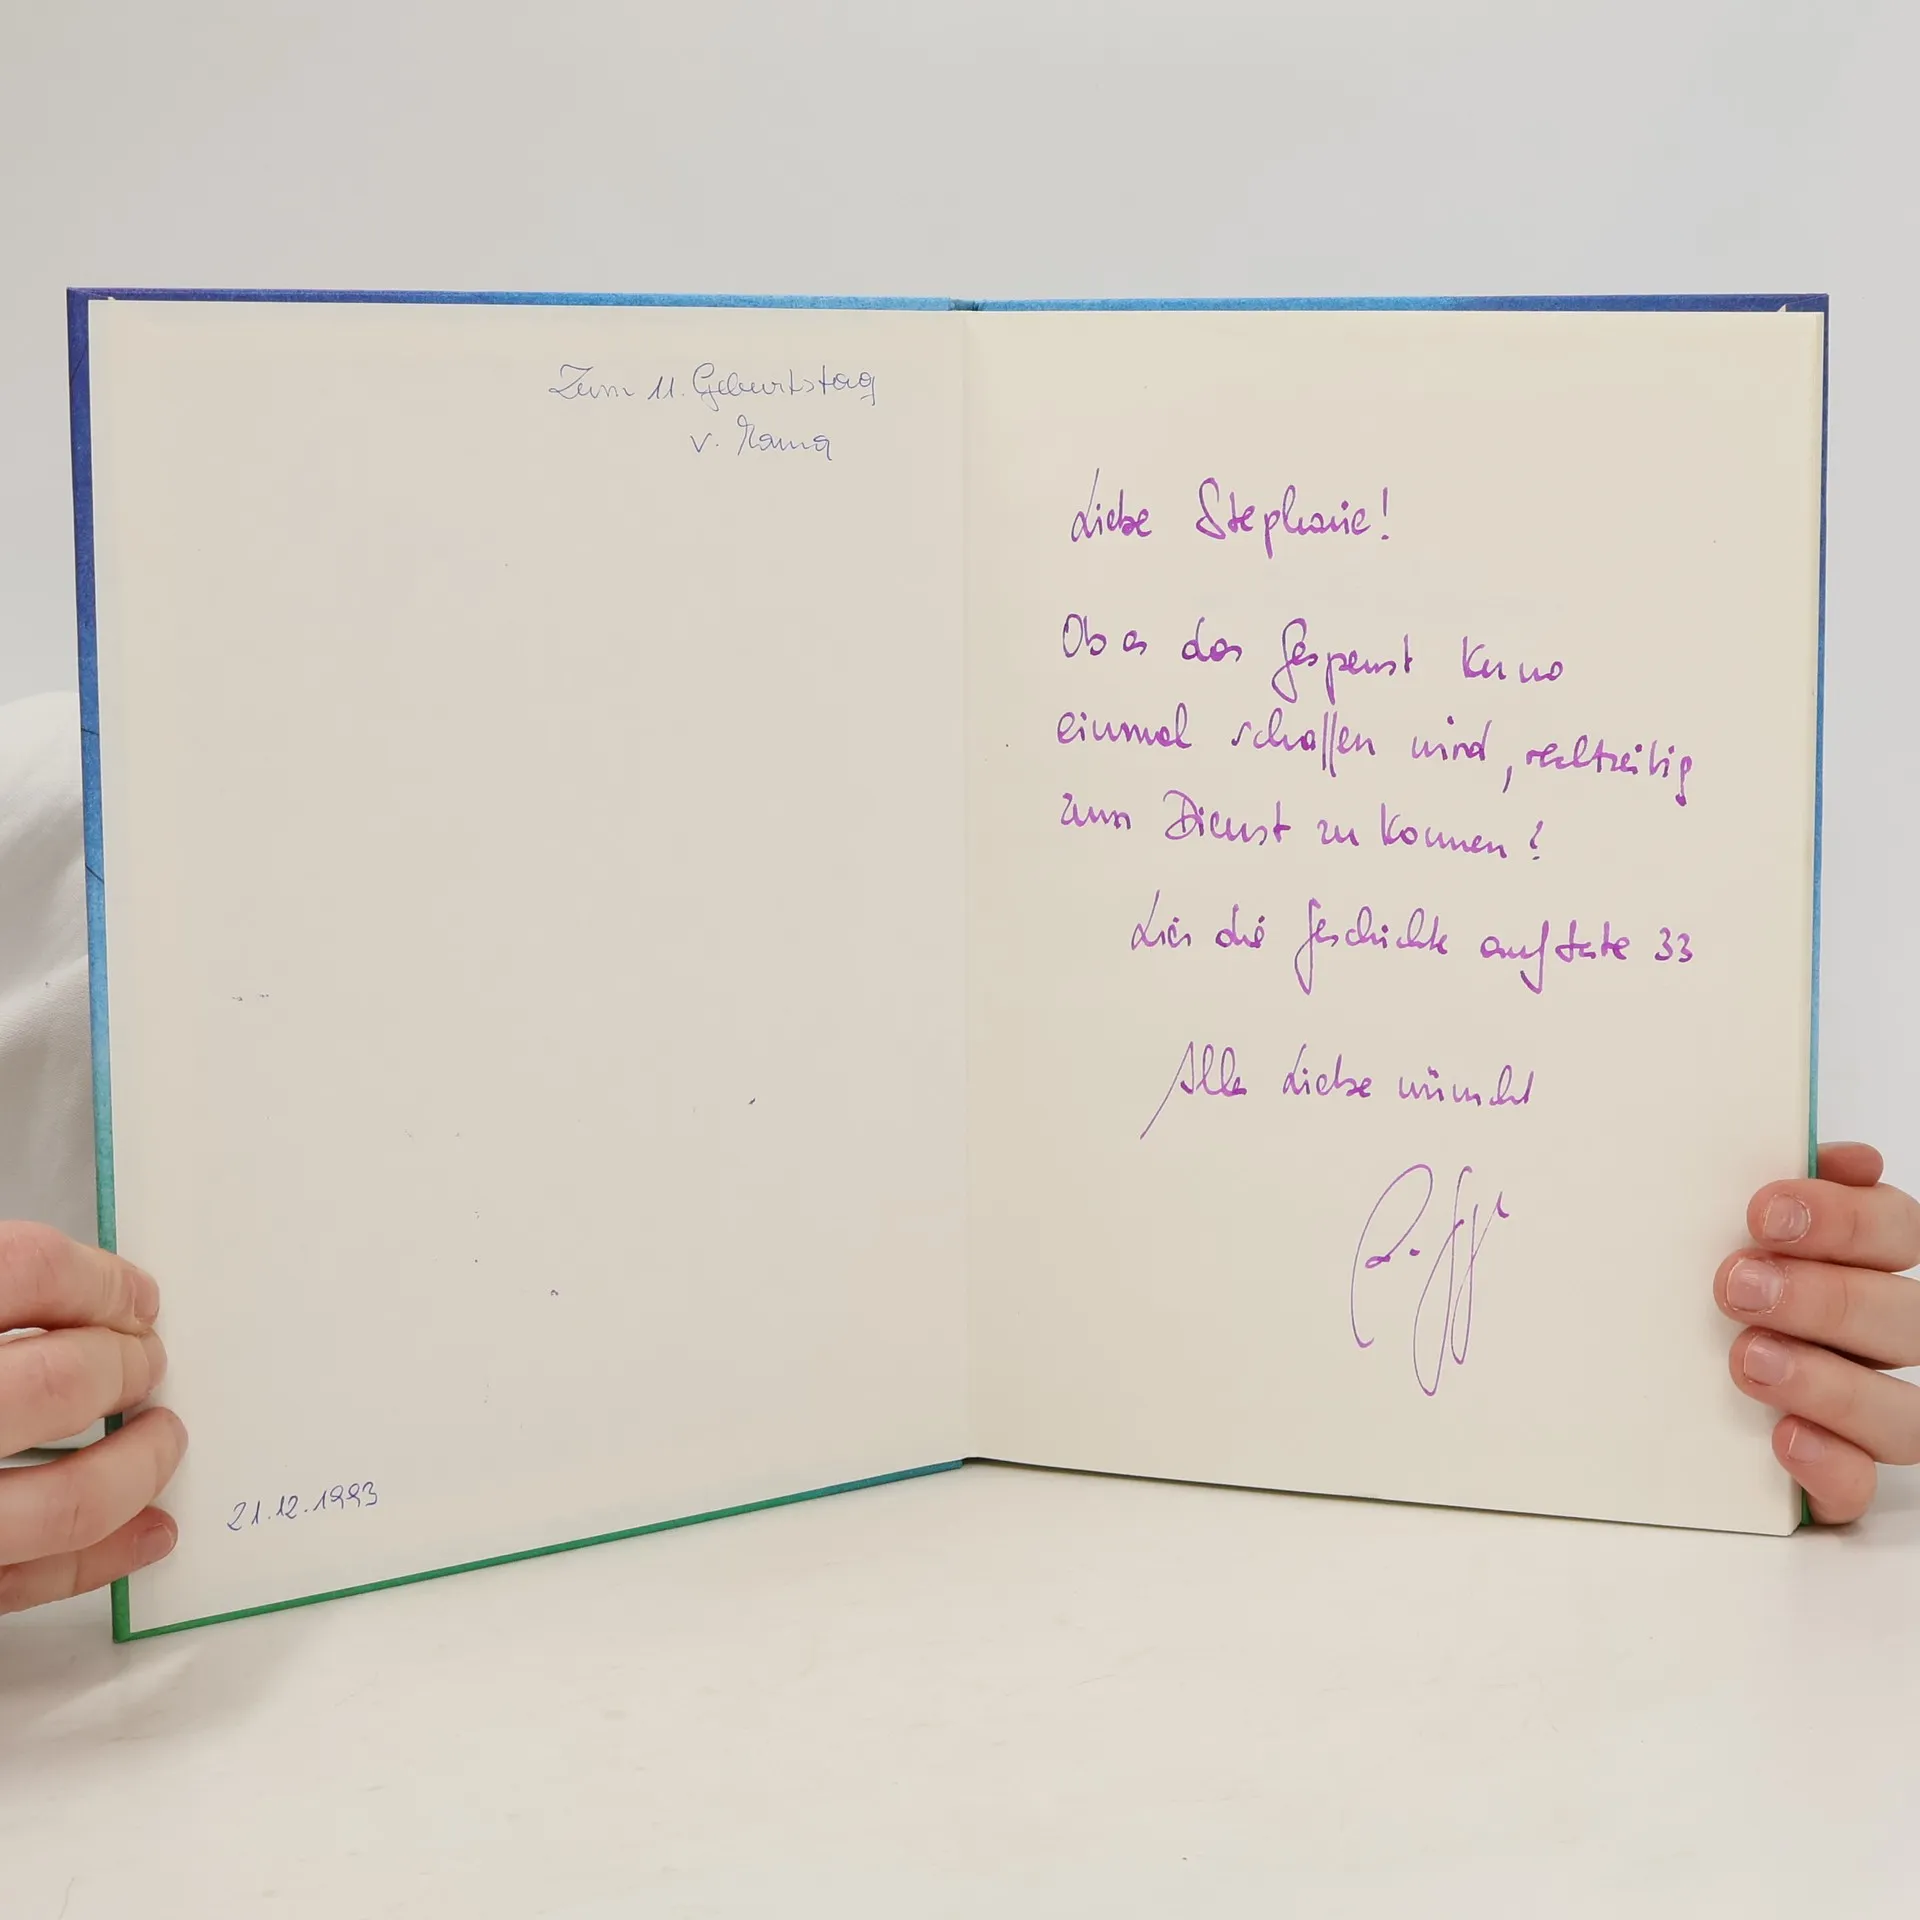 Zum 11. Geburtstag
v. Mama
21.12.1993
Liebe Stephanie!
Ob es das Gespenst Kuno
einmal schaffen wird, rechtzeitig
zum Dienst zu kommen?
Lies die Geschichte auf Seite 33
Alles Liebe wünscht